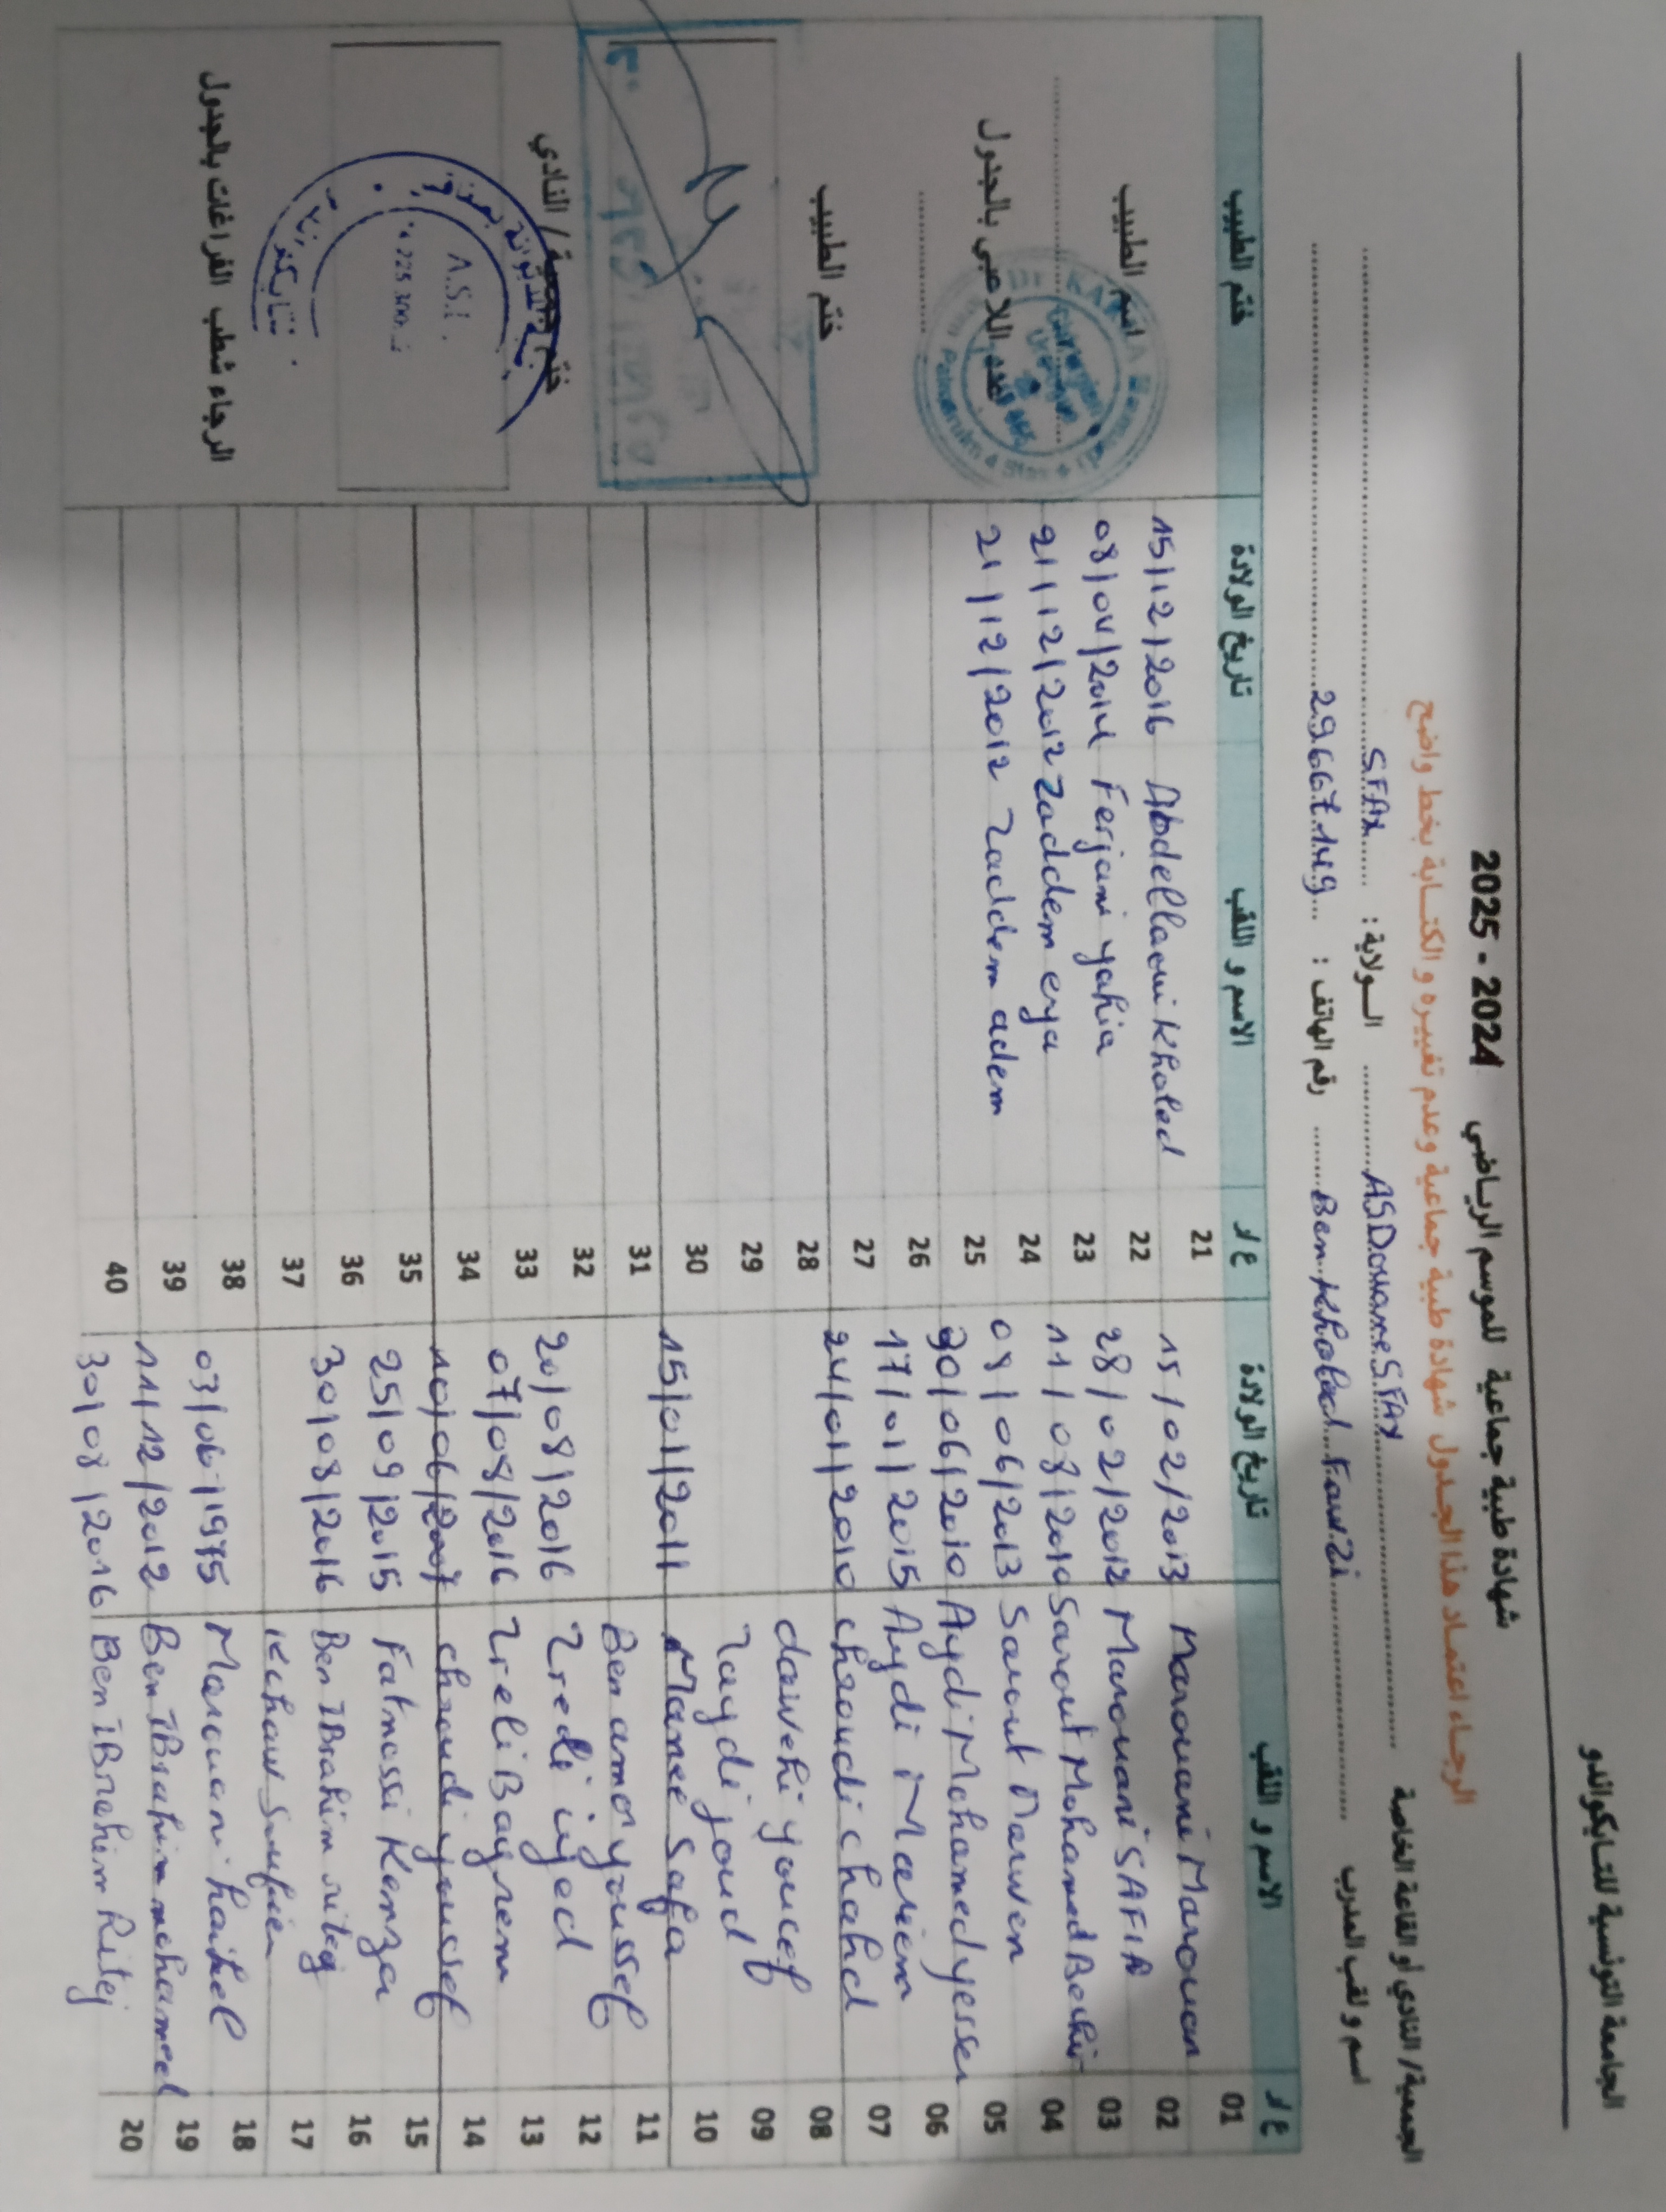 الجامعة التونسية للتايكواندو
شهادة طبية جماعية للموسم الرياضي 2024 - 2025
الرجاء اعتماد هذا الجدول شهادة طبية جماعية وعدم تغييره و الكتابة بخط واضح
الجمعية/ النادي أو القاعة الخاصة ASDouaneSFAX الولاية : SFAX
اسم و لقب المدرب Ben Khaled Fawzi رقم الهاتف : 29667149
ع/د الاسم و اللقب تاريخ الولادة ع/د الاسم و اللقب تاريخ الولادة ختم الطبيب
01 Marouani Marouan 15/02/2013 21 Abdellaoui Khaled 15/12/2016
02 Marouani SAFIA 28/02/2012 22 Ferjani yahia 08/04/2014
03 Sarout Mohamed Bechir 11/08/2010 23 Zaddem eya 21/12/2012
04 Sarout Marwen 08/06/2013 24 Zaddem adem 21/12/2012
05 Aydi Mohamed yesser 30/06/2010 25
06 Aydi Mariem 17/01/2015 26
07 chaoudi chahd 24/01/2010 27
08 daivehi youcef 28
09 Zaydi joud 29
10 Manee Safa 15/01/2011 30
11 Ben amor youssef 31
12 Zreli iyed 20/08/2016 32
13 Zreli Bayrem 07/08/2016 33
14 chaoudi youssef 10/06/2007 34
15 Fatnassi Kenza 25/09/2015 35
16 Ben IBrahim ritej 30/08/2016 36
17 Kchaw Soufien 37
18 Marouani haikel 03/06/1975 38
19 Ben IBrahim mohamed 11/12/2012 39
20 Ben IBrahim Ritej 30/08/2016 40
اسم الطبيب
عدد اللاعبي بالجدول
ختم الطبيب
ختم الجمعية / النادي
A.S.
الرجاء شطب الفراغات بالجدول